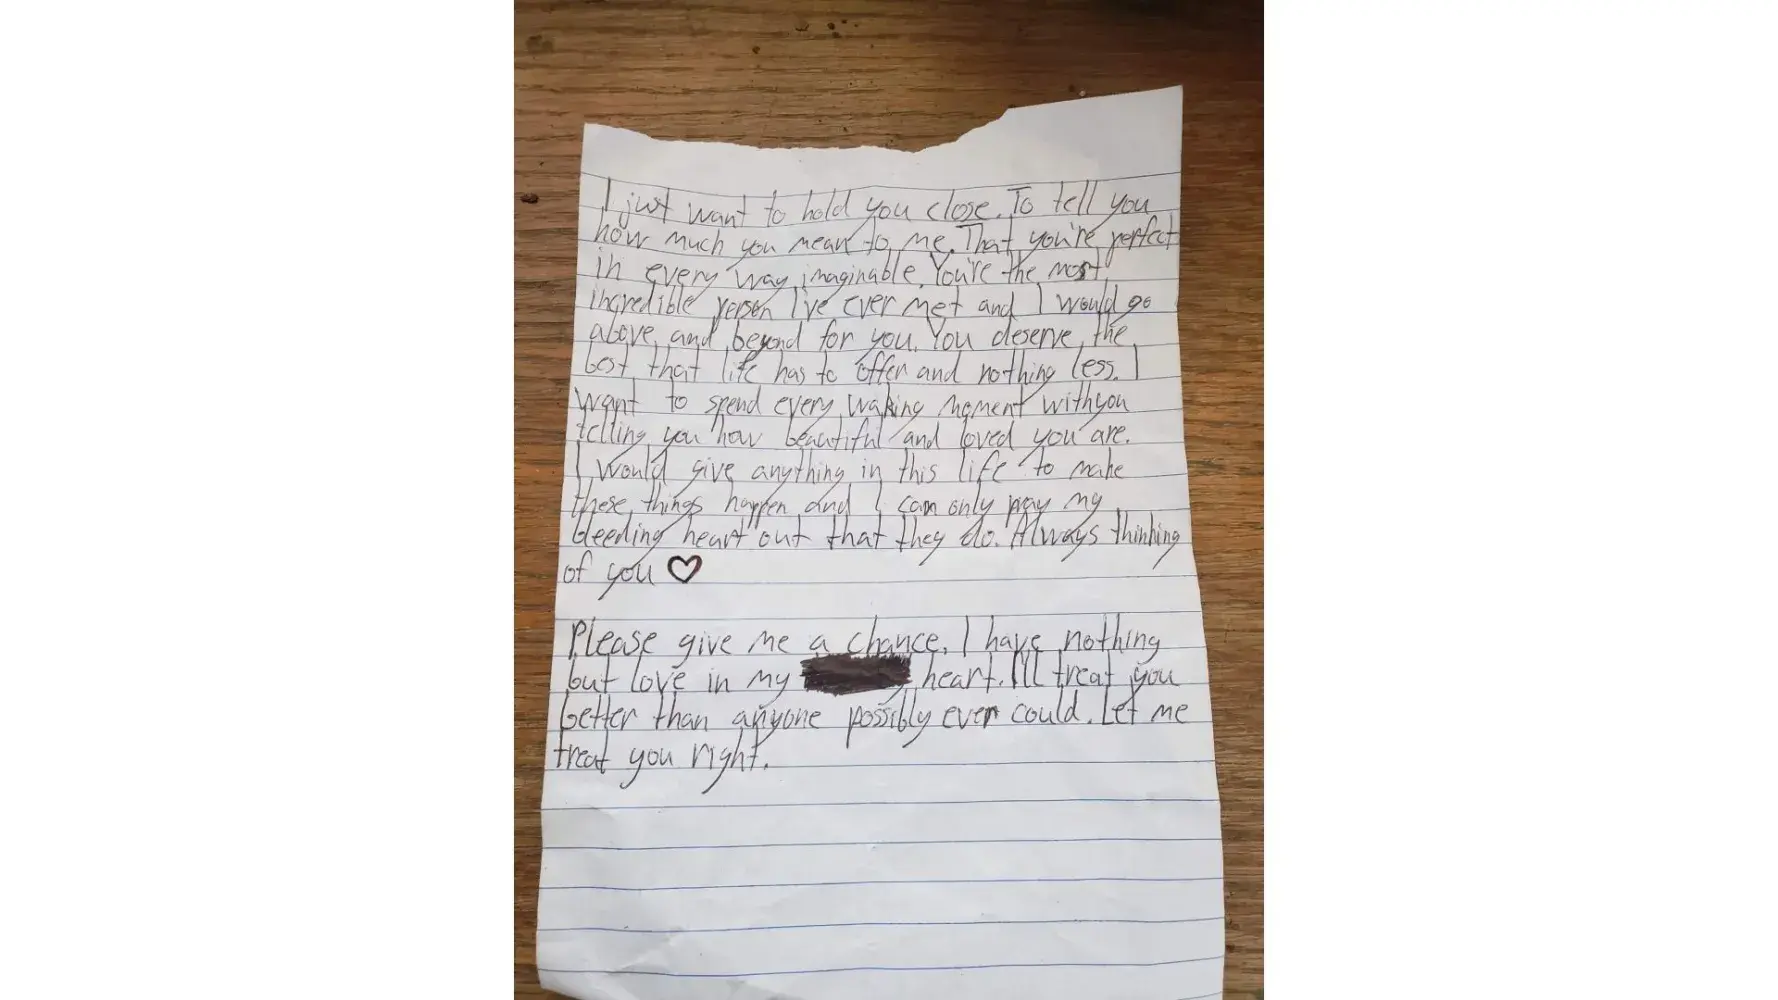 I just want to hold you close. To tell you
how much you mean to me. That you're perfect
in every way imaginable. You're the most
incredible person I've ever met and I would go
above and beyond for you. You deserve the
best that life has to offer and nothing less. I
want to spend every waking moment with you
telling you how beautiful and loved you are.
I would give anything in this life to make
these things happen and I can only pray my
bleeding heart out that they do. Always thinking
of you ♡
Please give me a chance. I have nothing
but love in my heart. I'll treat you
better than anyone possibly ever could. Let me
treat you right.